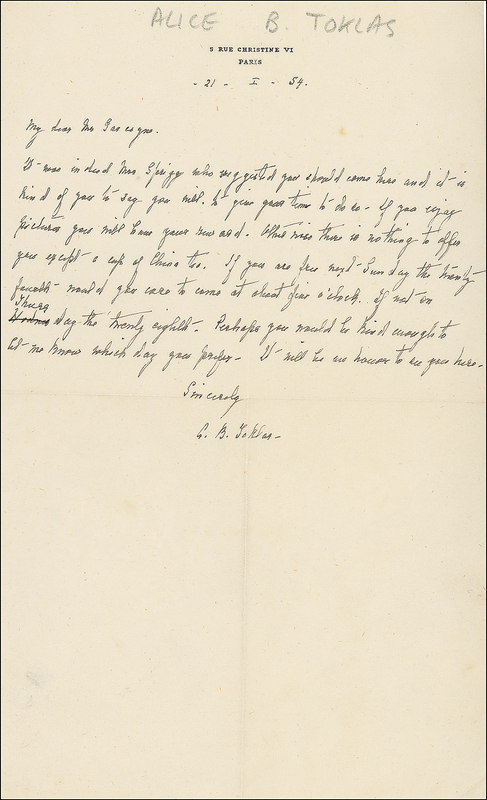 ALICE B. TOKLAS
5 RUE CHRISTINE VI
PARIS
- 21 - I - 54.
My dear Mr Gascoyne.
It was indeed Mrs. Sprigge who suggested you should come here and it is
kind of you to say you will. to give your time to do so - If you enjoy
pictures you will have your reward. Otherwise there is nothing to offer
you except a cup of China tea. If you are free next Sunday the twenty
fourth would you care to come at about five o'clock. If not on
Thurs
day the twenty eighth - Perhaps you would be kind enough to
let me know which day you prefer - It will be an honour to see you here -
Sincerely
A. B. Toklas -